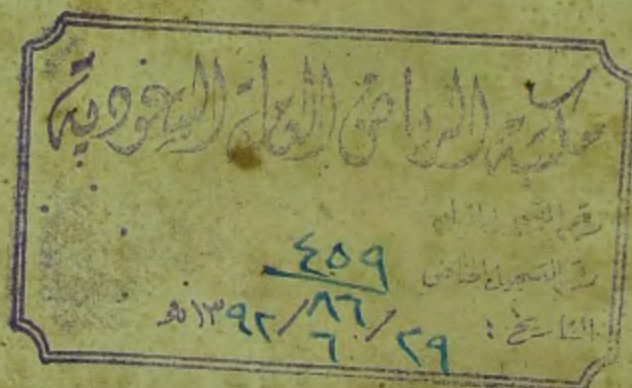 مكتبة الرياض العامة السعودية
رقم التسجيل العام
رقم التسجيل الخاص ٤٥٩
٨٦
التاريخ : ٢٩ / ٦ / ١٣٩٢ هـ